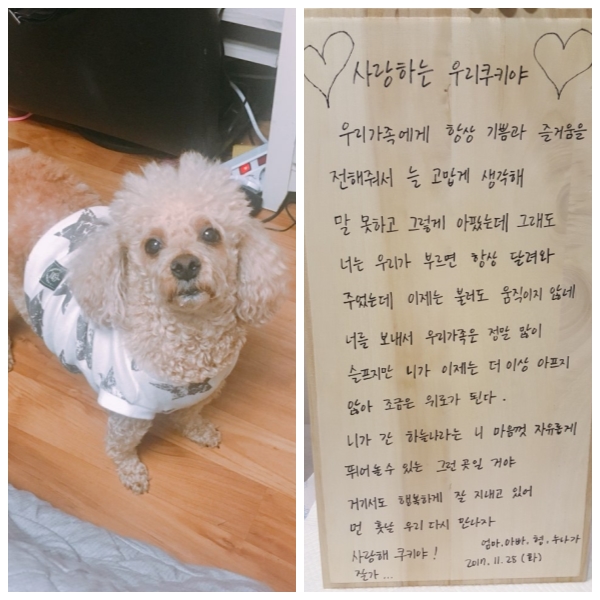 사랑하는 우리쿠키야
우리가족에게 항상 기쁨과 즐거움을
전해줘서 늘 고맙게 생각해
말 못하고 그렇게 아팠는데 그래도
너는 우리가 부르면 항상 달려와
주었는데 이제는 불러도 움직이지 않네
너를 보내서 우리가족은 정말 많이
슬프지만 니가 이제는 더이상 아프지
않아 조금은 위로가 된다.
니가 간 하늘나라는 니 마음껏 자유롭게
뛰어놀수 있는 그런 곳일 거야
거기서도 행복하게 잘 지내고 있어
먼 훗날 우리 다시 만나자
사랑해 쿠키야!
잘가...
엄마.아빠.형.누나가
2017.11.28(화)